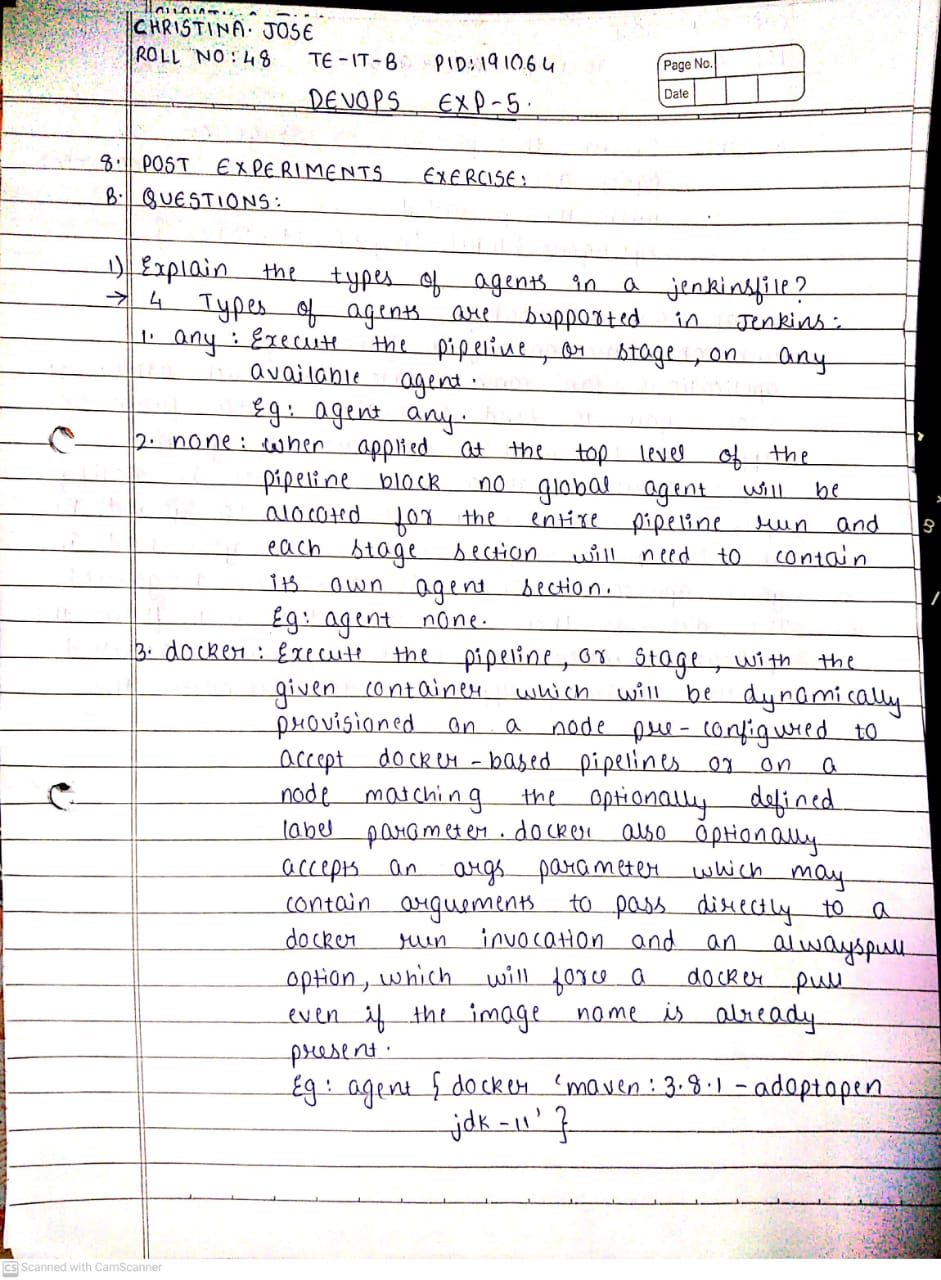 CHRISTINA. JOSE
ROLL NO: 48 TE-IT-B PID: 191064
Page No.
Date
DEVOPS EXP-5.
8. POST EXPERIMENTS EXERCISE:
B. QUESTIONS:
1) Explain the types of agents in a jenkinsfile?
→ 4 Types of agents are supported in Jenkins:
1. any: Execute the pipeline, or stage, on any
available agent.
Eg: agent any.
2. none: when applied at the top level of the
pipeline block no global agent will be
alocated for the entire pipeline run and
each stage section will need to contain
its own agent section.
Eg: agent none.
3. docker: Execute the pipeline, or stage, with the
given container which will be dynamically
provisioned on a node pre-configured to
accept docker-based pipelines or on a
node matching the optionally defined
label parameter. docker also optionally
accepts an args parameter which may
contain arguements to pass directly to a
docker run invocation and an alwayspull
option, which will force a docker pull
even if the image name is already
present.
Eg: agent { docker 'maven: 3.8.1-adoptopen
jdk-11' }
CS Scanned with CamScanner